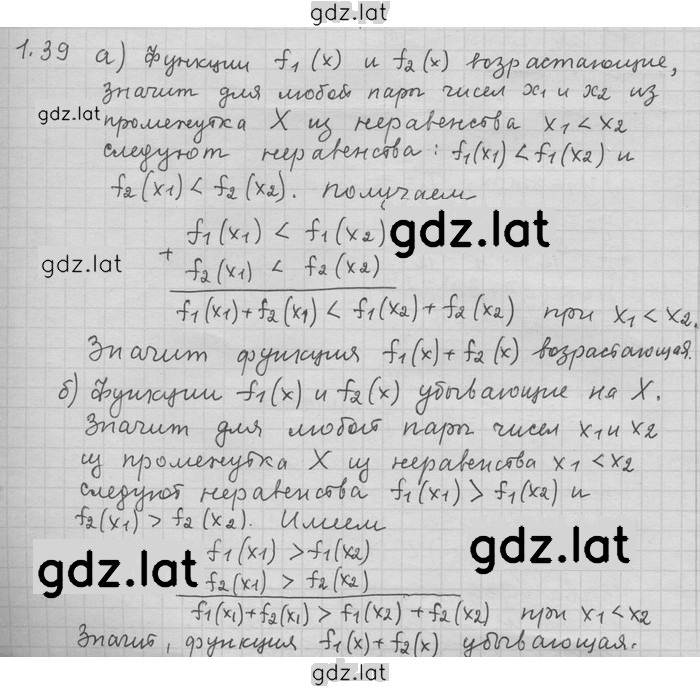 gdz.lat
1.39 а) Функции f₁(x) и f₂(x) возрастающие,
значит для любой пары чисел x₁ и x₂ из
gdz.lat
промежутка X из неравенства x₁ < x₂
следуют неравенства: f₁(x₁) < f₁(x₂) и
f₂(x₁) < f₂(x₂). получаем
f₁(x₁) < f₁(x₂)
gdz.lat
+
gdz.lat
f₂(x₁) < f₂(x₂)
f₁(x₁) + f₂(x₁) < f₁(x₂) + f₂(x₂) при x₁ < x₂.
Значит функция f₁(x) + f₂(x) возрастающая.
б) Функции f₁(x) и f₂(x) убывающие на X.
Значит для любой пары чисел x₁ и x₂
из промежутка X из неравенства x₁ < x₂
следуют неравенства f₁(x₁) > f₁(x₂) и
f₂(x₁) > f₂(x₂). Имеем
f₁(x₁) > f₁(x₂)
gdz.lat
gdz.lat
f₂(x₁) > f₂(x₂)
f₁(x₁) + f₂(x₁) > f₁(x₂) + f₂(x₂) при x₁ < x₂
Значит, функция f₁(x) + f₂(x) убывающая.
gdz.lat